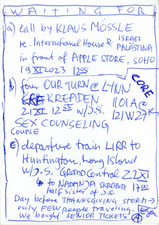 WAITING FOR
a) call by KLAUS MÖSSLE
re. International House & ISRAEL PALÄSTINA
in front of APPLE STORE, SOHO
19 XI 2023 12
b) four OUR TURN @ LYNN
KREFADEN CORE
21 XI. 12 W/J.S. 1101A @
121W27
SEX COUNSELING
COUPLE
c) departure train LIRR to
Huntington, Long Island
W/J.S. GRAND CENTRAL 22 XI
to
Half Sister of J.S.
Day before THANKSGIVING STORM →
only FEW people traveling.
We bought SENIOR TICKETS